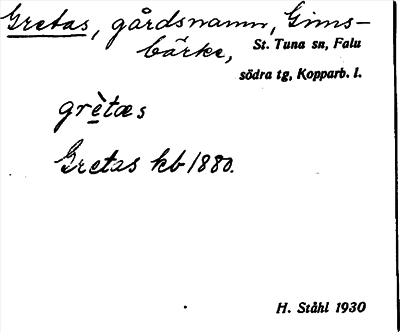 Gretas, gårdsnamn, Gims-
bärke, St. Tuna sn, Falu
södra tg, Kopparb. l.
grètæs
Gretas kb 1880.
H. Ståhl 1930